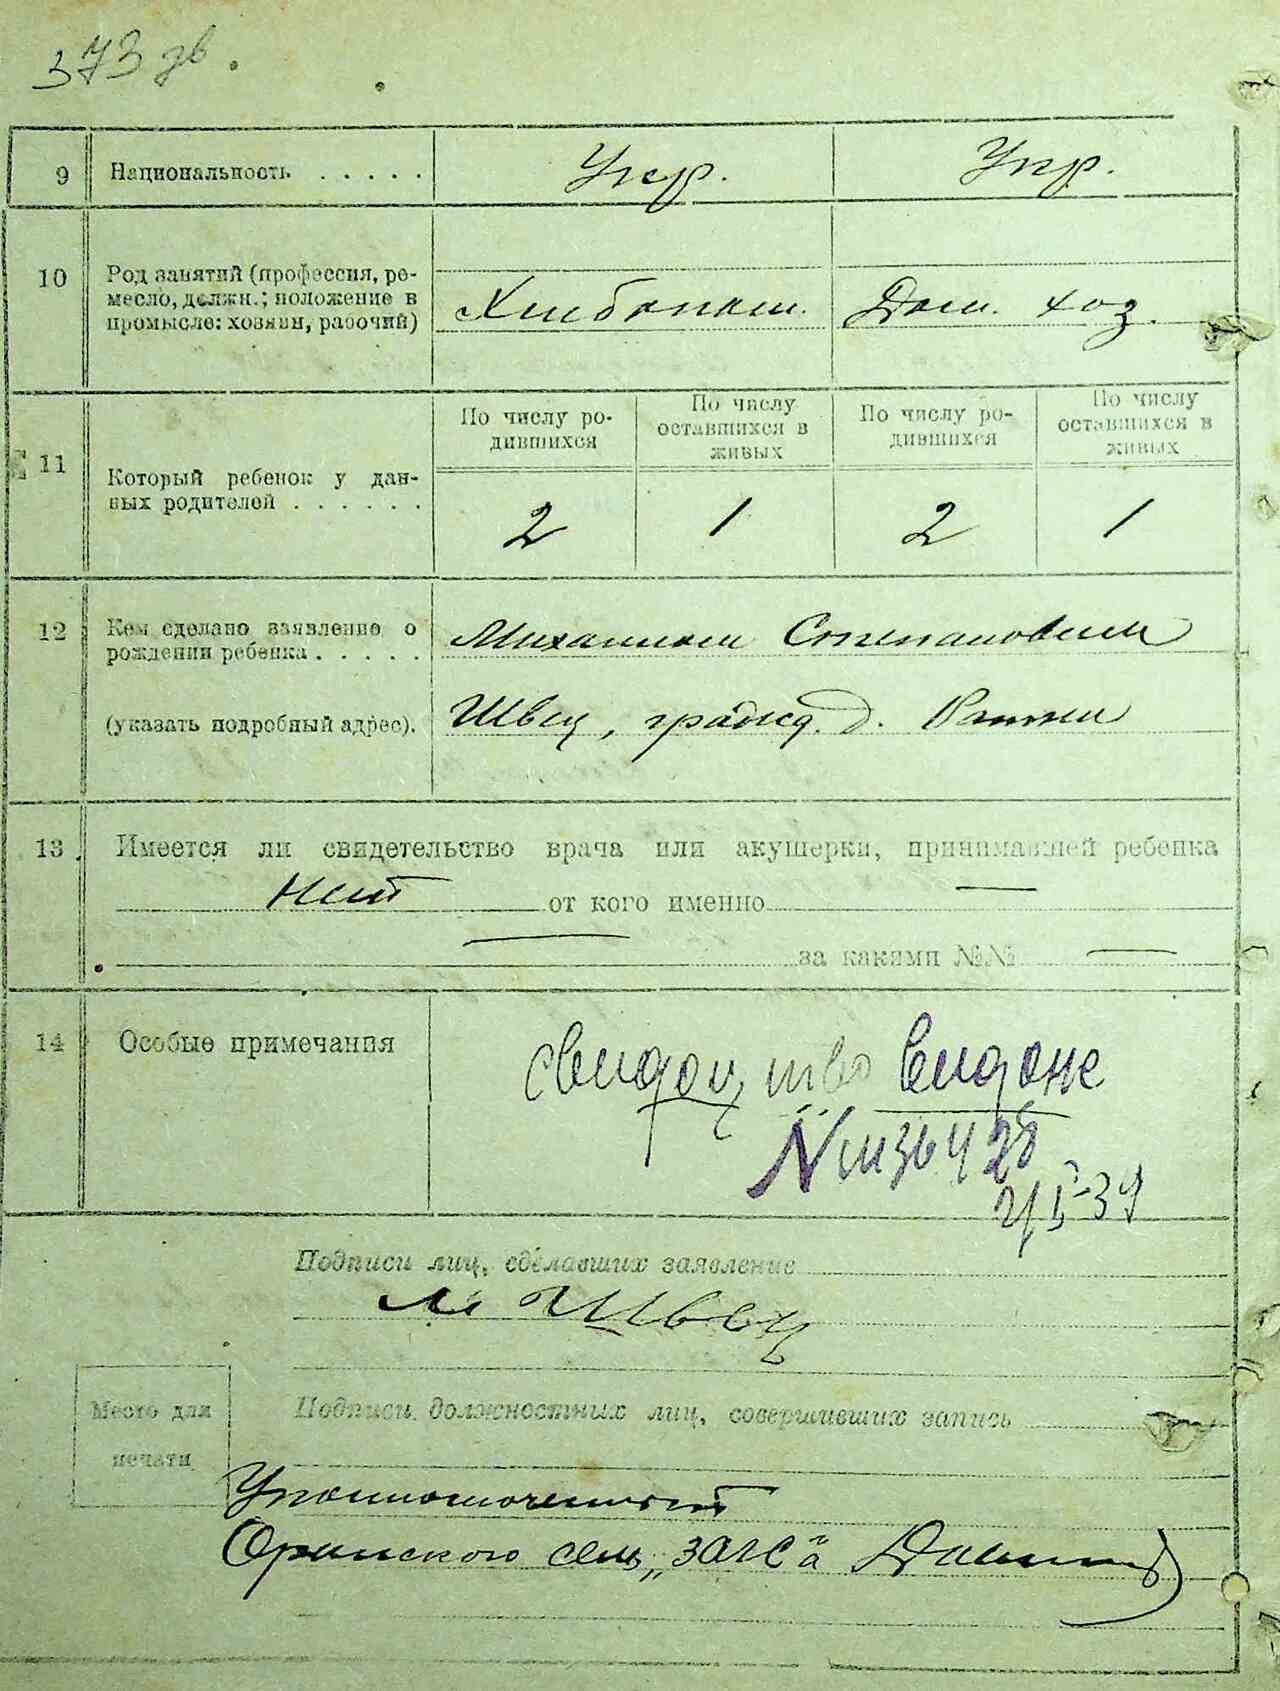 373 зв.
9 Национальность . . . . . Укр. Укр.
10 Род занятий (профессия, ре-
месло, должн.; положение в
промысле: хозяин, рабочий)
Хлебопаш. Дом. хоз.
По числу ро-
дившихся
По числу
оставшихся в
живых
По числу ро-
дившихся
По числу
оставшихся в
живых
11 Который ребенок у дан-
ных родителей . . . . . .
2 1 2 1
12 Кем сделано заявление о
рождении ребенка . . . . .
(указать подробный адрес).
Михаилом Степановичем
Швец, гражд. д.
13 Имеется ли свидетельство врача или акушерки, принимавшей ребенка
Нет от кого именно —
— за какими №№ —
14 Особые примечания
свидоцтво видане
N
Подписи лиц, сделавших заявление
М Швец
Место для
печати
Подписи должностных лиц, совершивших запись
Уполномоченный
сель „загс"а